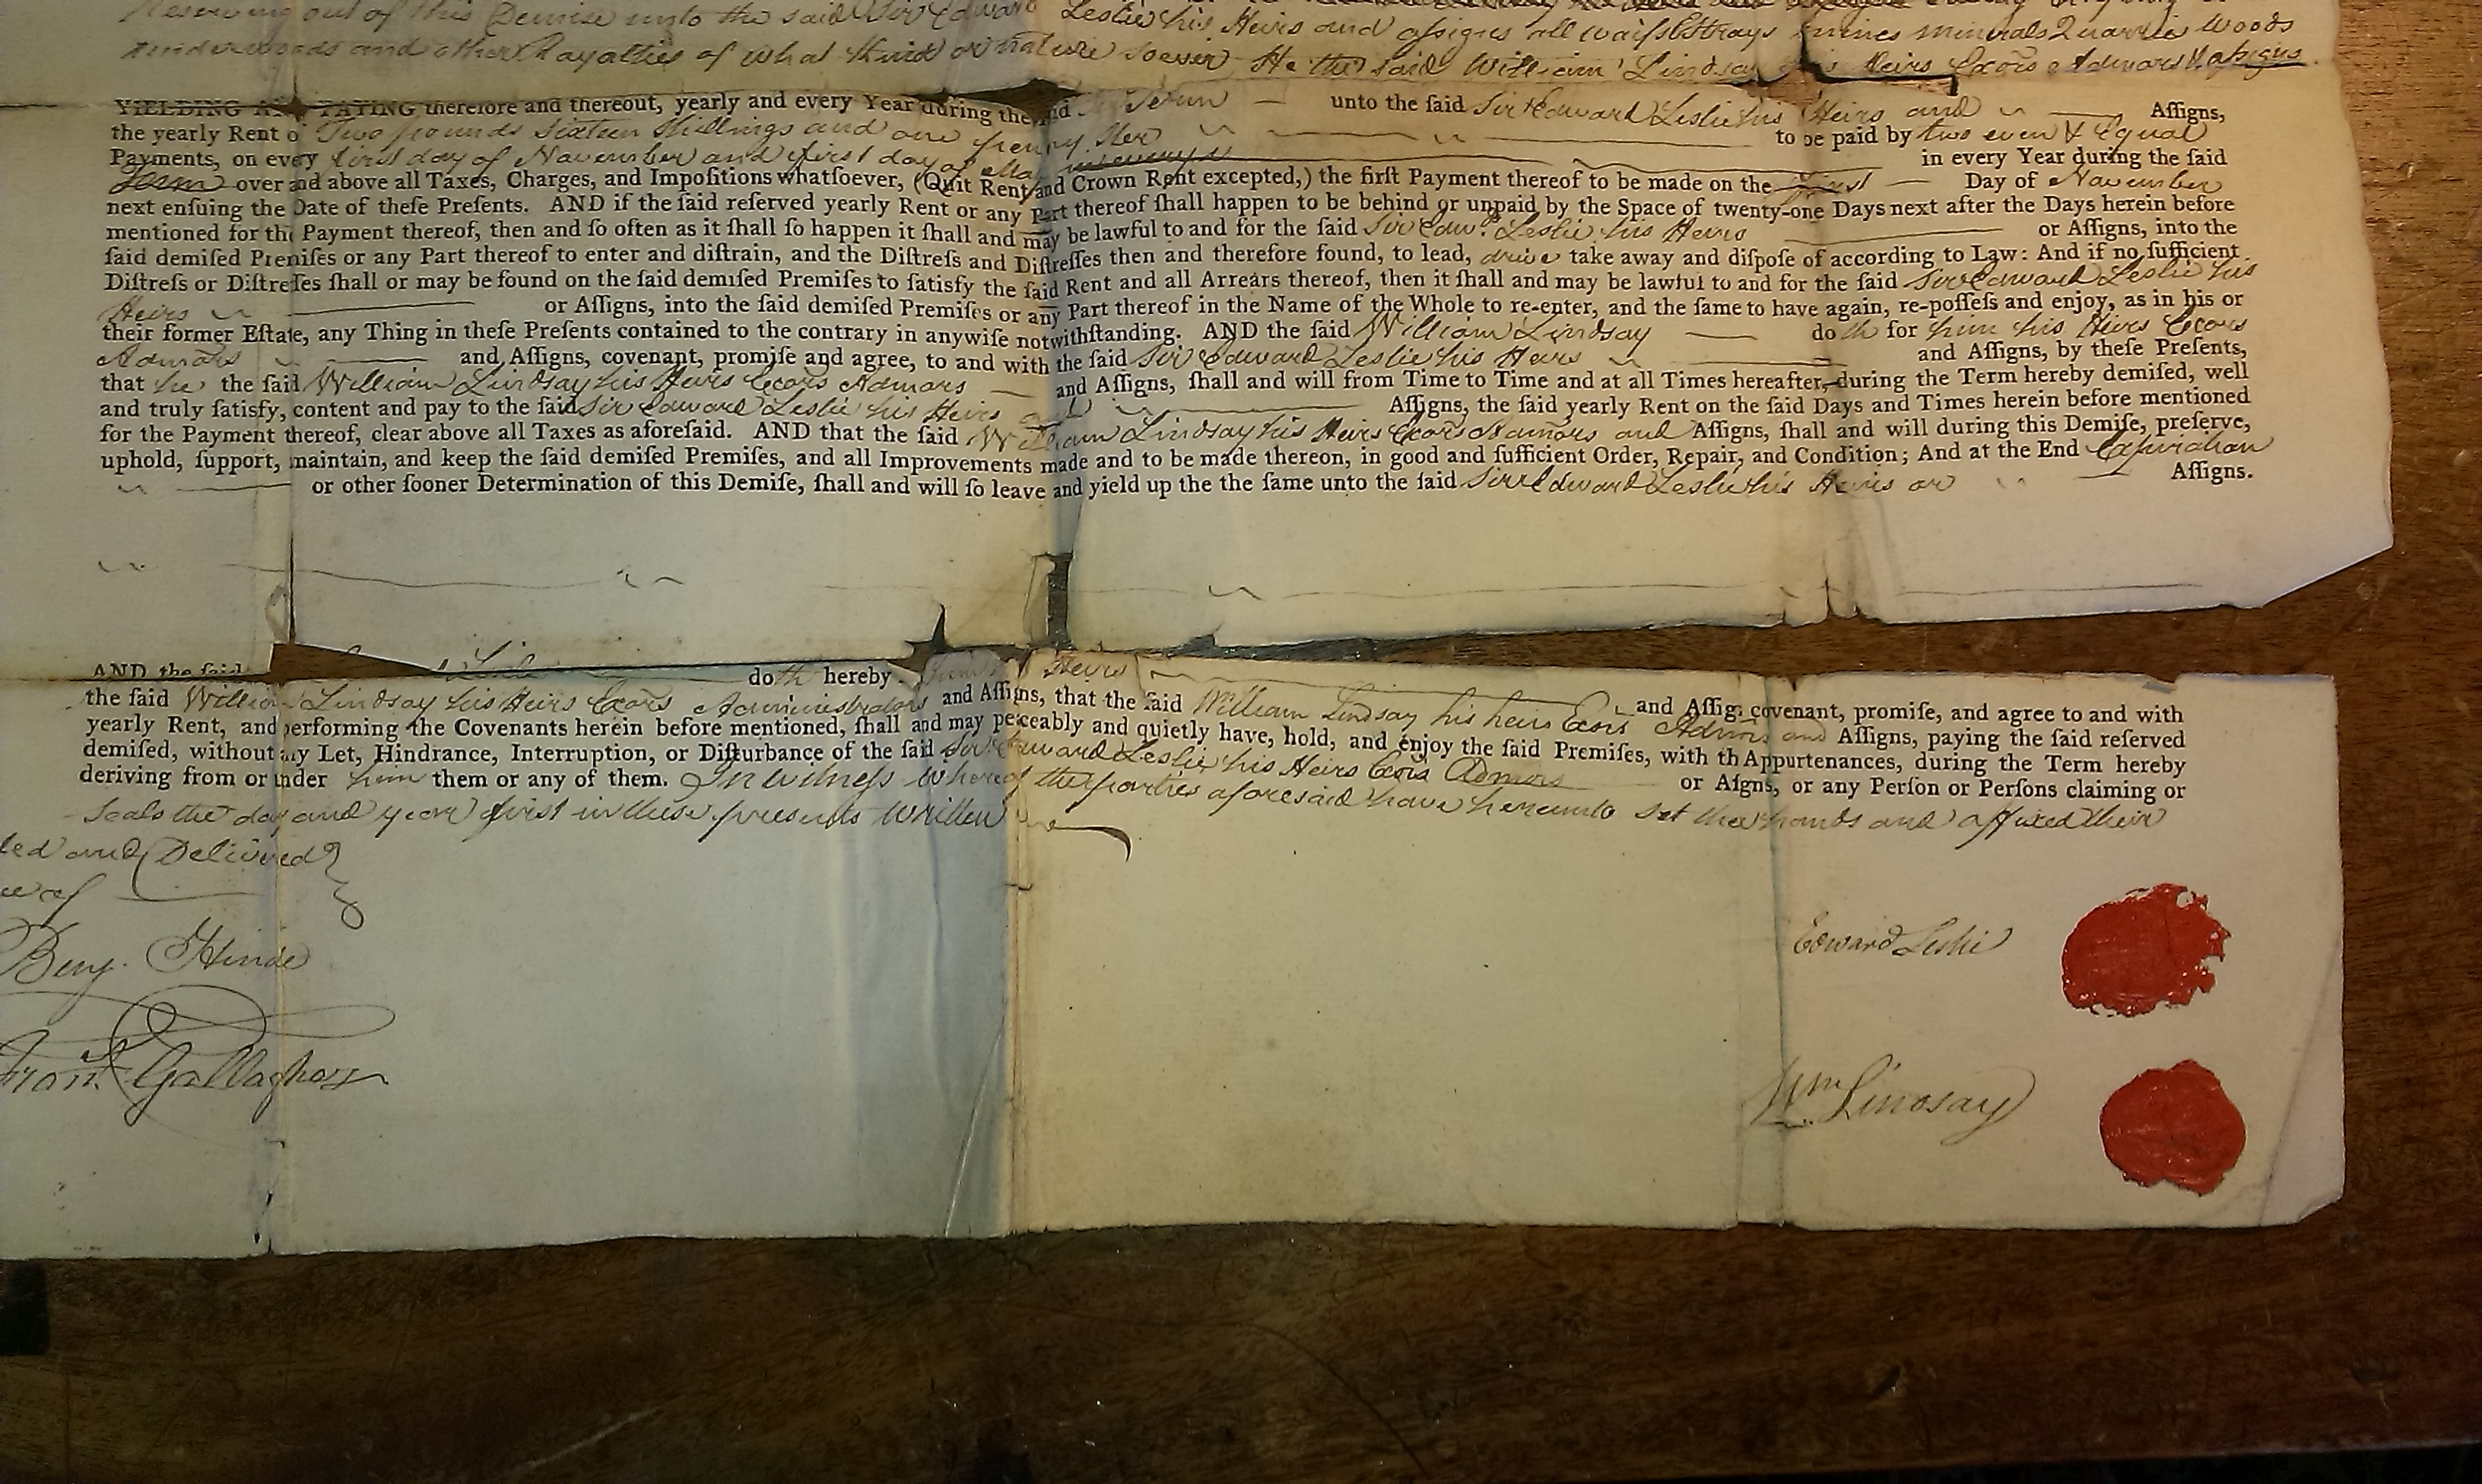 Reserving out of this Demise unto the said Sir Edward Leslie his Heirs and assigns all waifs Estrays mines minerals Quarries Woods
underwoods and other Royalties of what Kind or nature soever He the said William Lindsay his Heirs Exors Admors & assigns
YIELDING AND PAYING therefore and thereout, yearly and every Year during the said Term unto the ſaid Sir Edward Leslie his Heirs and Aſſigns,
the yearly Rent of Two pounds Sixteen Shillings and one penny Ster to be paid by two even & Equal
Payments, on every first day of November and first day of May in every Year during the ſaid
Term over and above all Taxes, Charges, and Impoſitions whatſoever, (Quit Rent and Crown Rent excepted,) the firſt Payment thereof to be made on the first Day of November
next enſuing the Date of theſe Preſents. AND if the ſaid reſerved yearly Rent or any Part thereof ſhall happen to be behind or unpaid by the Space of twenty-one Days next after the Days herein before
mentioned for the Payment thereof, then and ſo often as it ſhall ſo happen it ſhall and may be lawful to and for the ſaid Sir Edwd. Leslie his Heirs or Aſſigns, into the
ſaid demiſed Premiſes or any Part thereof to enter and diſtrain, and the Diſtreſs and Diſtreſſes then and therefore found, to lead, drive take away and diſpoſe of according to Law: And if no ſufficient
Diſtreſs or Diſtreſſes ſhall or may be found on the ſaid demiſed Premiſes to ſatisfy the ſaid Rent and all Arrears thereof, then it ſhall and may be lawful to and for the ſaid Sir Edward Leslie his
Heirs or Aſſigns, into the ſaid demiſed Premiſes or any Part thereof in the Name of the Whole to re-enter, and the ſame to have again, re-poſſeſs and enjoy, as in his or
their former Eſtate, any Thing in theſe Preſents contained to the contrary in anywiſe notwithſtanding. AND the ſaid William Lindsay doth for him his Heirs Exors
Admors and Aſſigns, covenant, promiſe and agree, to and with the ſaid Sir Edward Leslie his Heirs and Aſſigns, by theſe Preſents,
that he the ſaid William Lindsay his Heirs Exors Admors and Aſſigns, ſhall and will from Time to Time and at all Times hereafter, during the Term hereby demiſed, well
and truly ſatisfy, content and pay to the ſaid Sir Edward Leslie his Heirs and Aſſigns, the ſaid yearly Rent on the ſaid Days and Times herein before mentioned
for the Payment thereof, clear above all Taxes as aforeſaid. AND that the ſaid William Lindsay his Heirs Exors Admors and Aſſigns, ſhall and will during this Demiſe, preſerve,
uphold, ſupport, maintain, and keep the ſaid demiſed Premiſes, and all Improvements made and to be made thereon, in good and ſufficient Order, Repair, and Condition; And at the End Expiration
or other ſooner Determination of this Demiſe, ſhall and will ſo leave and yield up the the ſame unto the ſaid Sir Edward Leslie his Heirs or Aſſigns.
AND the ſaid Leslie doth hereby Heirs and Aſſig. covenant, promiſe, and agree to and with
the ſaid William Lindsay his Heirs Exors Administrators and Aſſigns, that the ſaid William Lindsay his heirs Exors Admors and Aſſigns, paying the ſaid reſerved
yearly Rent, and performing the Covenants herein before mentioned, ſhall and may peaceably and quietly have, hold, and enjoy the ſaid Premiſes, with th Appurtenances, during the Term hereby
demiſed, without any Let, Hindrance, Interruption, or Diſturbance of the ſaid Sir Edward Leslie his Heirs Exors Admors or Aſigns, or any Perſon or Perſons claiming or
deriving from or under him them or any of them. In witness whereof the parties aforesaid have hereunto set their hands and affixed their
Seals the day and year first in these presents written
ed and Delivered
of
Benj. Hinde
Edward Leslie
Gallagher
Wm Lindsay